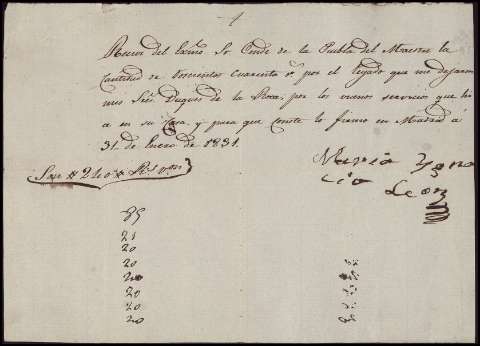 Recivi del Exmo. Sr. Conde de la Puebla del Maestre la
Cantidad de Doscientos Cuarenta rs. por el legado que me dejaron
mis Sres. Duques de la Roca, por los buenos servicios que hi
ce en su Casa, y para que conste lo firmo en Madrid á
31. de Enero de 1831.
Son # 240 # Rs. von
Maria Ygna
cia
Leon
20
20
20
20
20
20